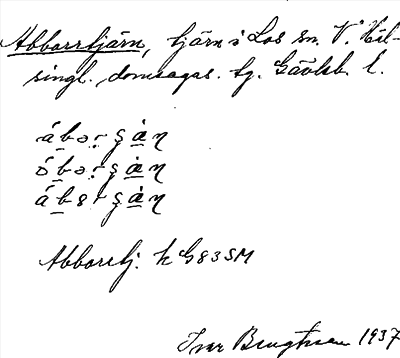 Abborrtjärn, tjärn i Los sn. V. Häl-
singl. domsagas. tg. Gävleb. l.
ábə.rʂàn̥
óbə.rʂàn̥
ábərʂàn̥
Abborrtj. k G83SM
Ivar Bengtsson 1937